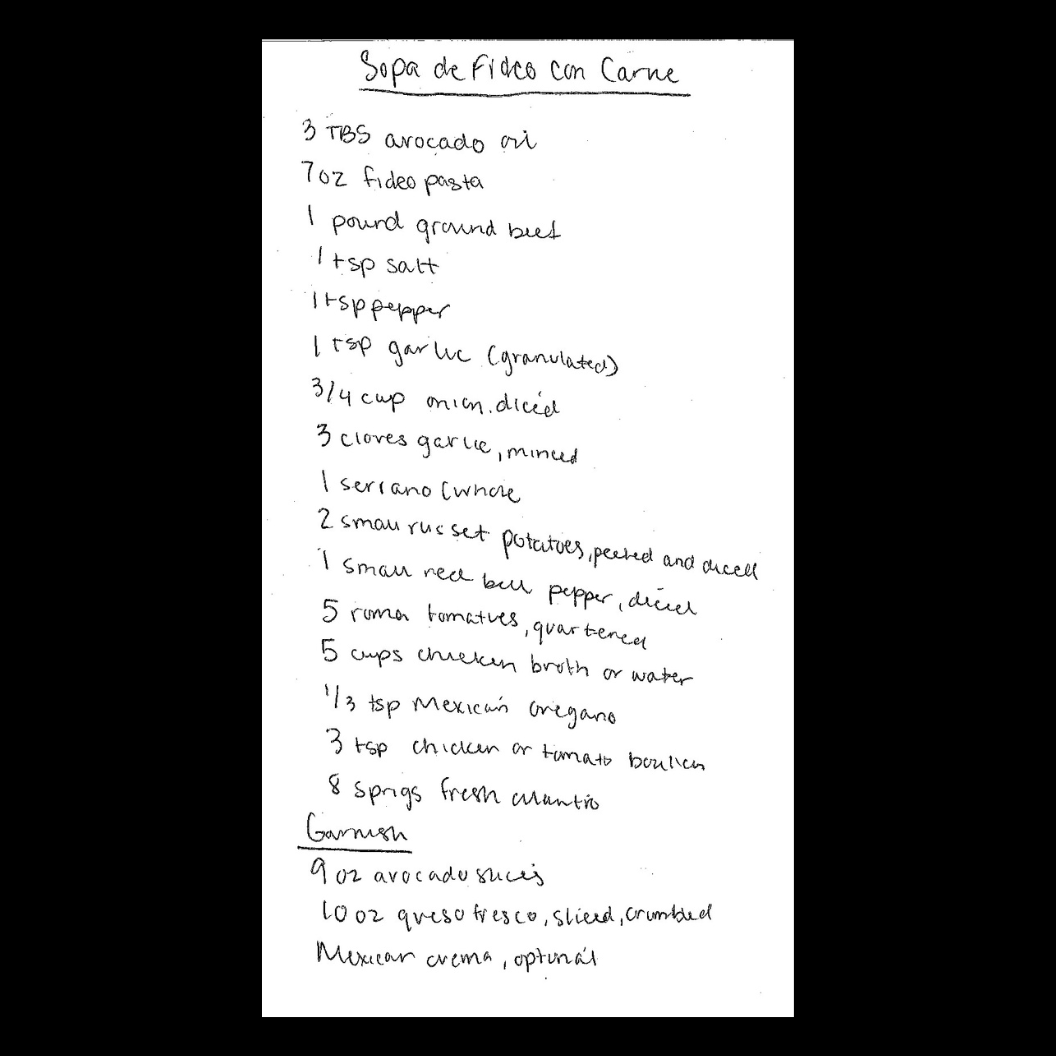 Sopa de Fideo con Carne
3 TBS avocado oil
7oz fideo pasta
1 pound ground beef
1 tsp salt
1 tsp pepper
1 tsp garlic (granulated)
3/4 cup onion, diced
3 cloves garlic, minced
1 serrano (whole
2 small russet potatoes, peeled and diced
1 small red bell pepper, diced
5 roma tomatoes, quartered
5 cups chicken broth or water
1/3 tsp Mexican oregano
3 tsp chicken or tomato boullion
8 sprigs fresh cilantro
Garnish
9 oz avocado slices
10 oz queso fresco, sliced, crumbled
Mexican crema, optional